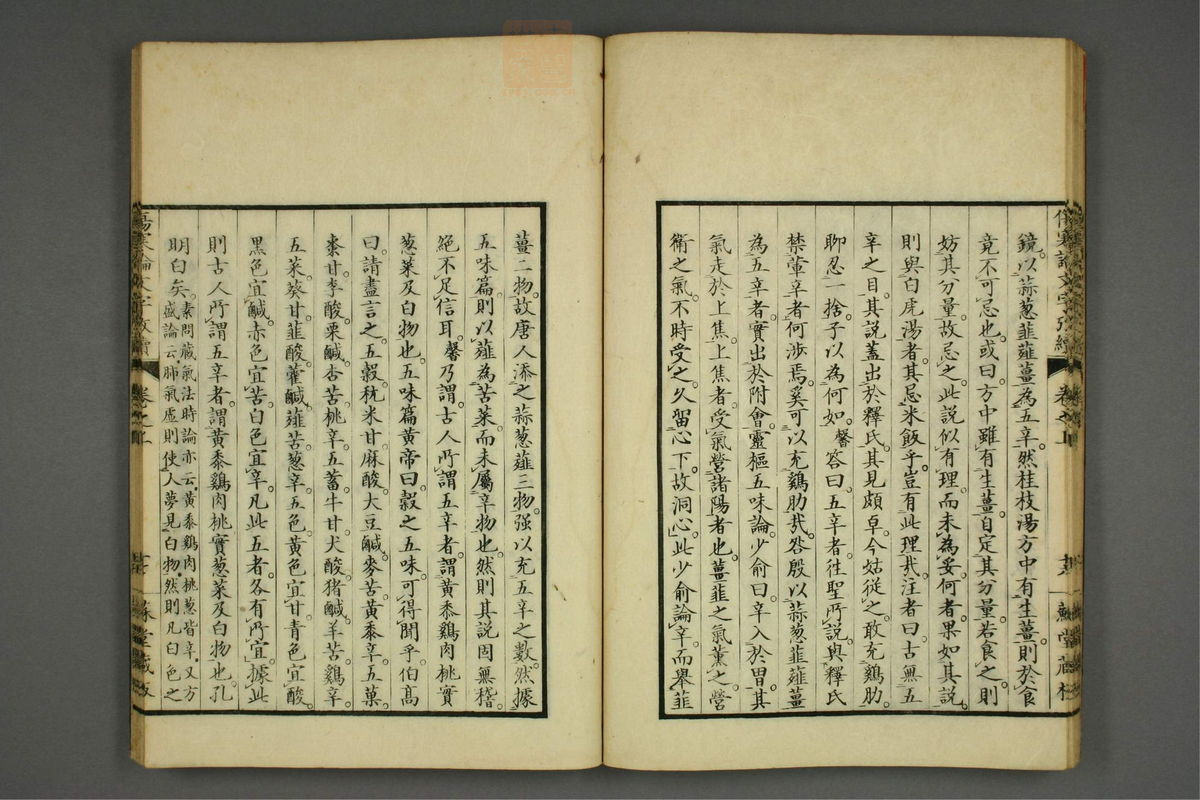 鏡。以蒜葱韮薤薑為五辛。然桂枝湯方中有生薑。則於食
竟不可忌也。或曰。方中雖有生薑。自定其分量。若食之。則
妨其分量。故忌之。此說似有理。而未為妥。何者。果如其說。
則與白尾湯者。其忌米飯乎。豈有此理哉。汪者曰。古無五
辛之目。其說蓋出於釋氏。其見頗卓。今姑從之。敢充鷄肋。
聊忍一捨。子以為何如。馨答曰。五辛者。往聖所說。與釋氏
禁葷辛者。何涉焉。奚可以充鷄肋哉。咎殷以蒜葱韮薤薑
為五辛者。實出於附會。靈樞五味論。少俞曰。辛入於胃。其
氣走於上焦。上焦者。受氣營諸陽者也。薑韮之氣薰之。營
衛之氣。不時受之。久留心下。故洞心。此少俞論辛。而舉韮
薑二物。故唐人添之蒜葱薤三物。强以充五辛之數。然據
五味篇。則以薤為苦菜。而未屬辛物也。然則其說固無稽。
絕不足信耳。馨乃謂。古人所謂五辛者。謂黃黍鷄肉桃實
葱菜及白物也。五味篇。黃帝曰。穀之五味。可得聞乎。伯高
曰。請盡言之。五穀。秔米甘。麻酸。大豆鹹。麥苦。黃黍辛。五菓。
棗甘。李酸。栗鹹。杏苦。桃辛。五畜。牛甘。犬酸。猪鹹。羊苦。鷄辛。
五菜。葵甘。韮酸。藿鹹。薤苦。葱辛。五色。黃色宜甘。青色宜酸。
黑色宜鹹。赤色宜苦。白色宜辛。凡此五者。各有所宜。據此
則古人所謂五辛者。謂黃黍鷄肉桃實葱菜及白物也。孔
明白矣。素問藏氣法時論亦云。黃黍鷄肉桃葱皆辛。又方
盛論云。肺氣虛。則使人夢見白物。然則凡白色之
卷之上